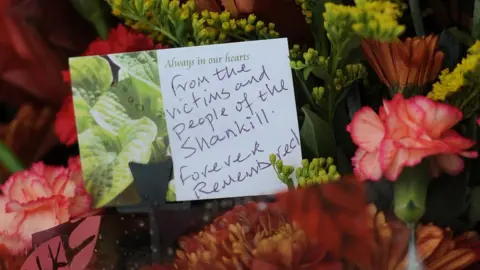 Always in our hearts
From the
victims and
People of the
Shankill.
Forever
Remembered